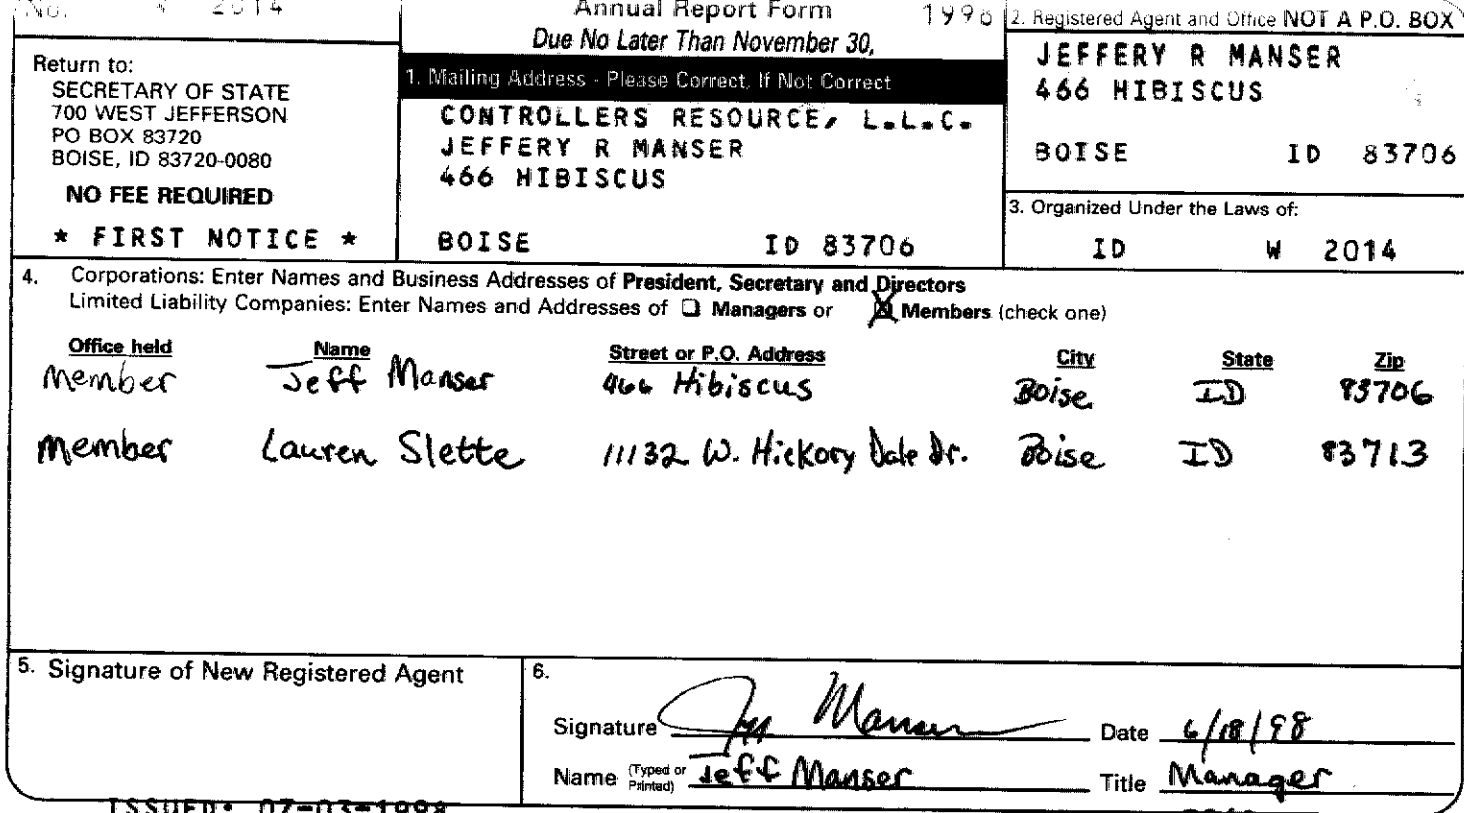 No. W 2014
Annual Report Form 1998
Due No Later Than November 30,
Return to:
SECRETARY OF STATE
700 WEST JEFFERSON
PO BOX 83720
BOISE, ID 83720-0080
NO FEE REQUIRED
* FIRST NOTICE *
1. Mailing Address - Please Correct, If Not Correct
CONTROLLERS RESOURCE, L.L.C.
JEFFERY R MANSER
466 HIBISCUS
BOISE ID 83706
2. Registered Agent and Office NOT A P.O. BOX
JEFFERY R MANSER
466 HIBISCUS
BOISE ID 83706
3. Organized Under the Laws of:
ID W 2014
4. Corporations: Enter Names and Business Addresses of President, Secretary and Directors
Limited Liability Companies: Enter Names and Addresses of ❑ Managers or ☒ Members (check one)
Office held Name Street or P.O. Address City State Zip
Member Jeff Manser 466 Hibiscus Boise ID 83706
Member Lauren Slette 11132 W. Hickory Dale Dr. Boise ID 83713
5. Signature of New Registered Agent
6.
Signature Jeff Manser Date 6/18/98
Name (Typed or Printed) Jeff Manser Title Manager
ISSUED: 07-03-1998